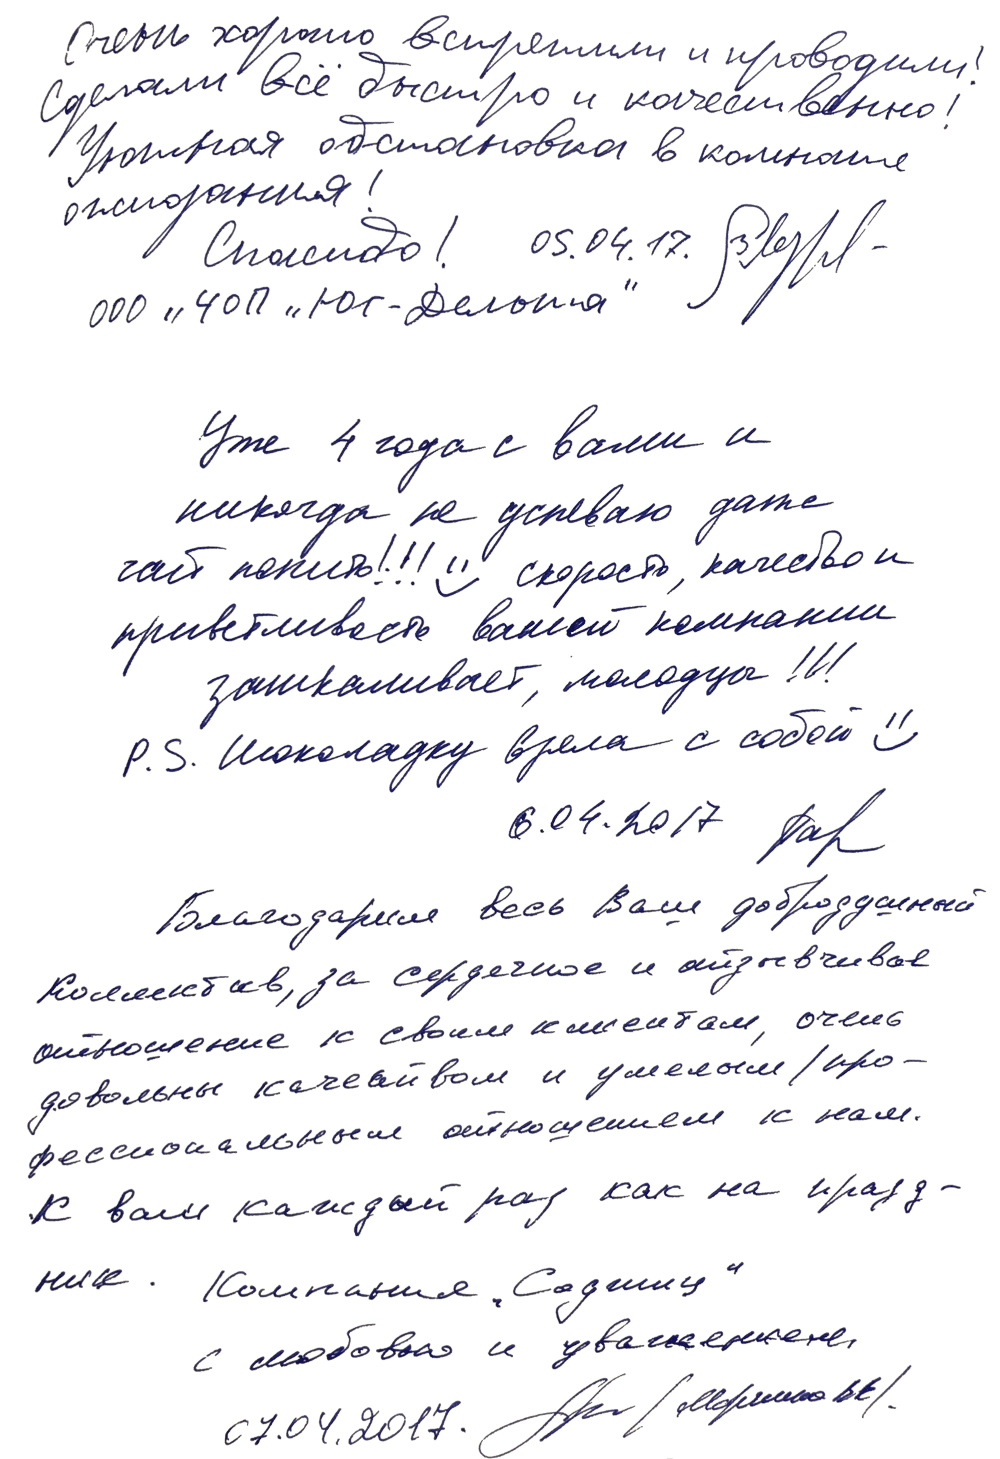 Очень хорошо встретили и проводили!
Сделали всё быстро и качественно!
Уютная обстановка в комнате
ожидания!
Спасибо! 05.04.17.
ООО „ЧОП „Юг-Дельта"
Уже 4 года с вами и
никогда не успеваю даже
чай попить!!!! скорость, качество и
приветливость вашей компании
зашкаливает, молодцы!!!
P.S. Шоколадку взяла с собой
6.04.2017
Благодарим весь Ваш добродушный
коллектив, за сердечное и отзывчивое
отношение к своим клиентам, очень
довольны качеством и умелым/про-
фессиональным отношением к нам.
К вам каждый раз как на празд-
ник. Компания „
с любовью и уважением,
07.04.2017.